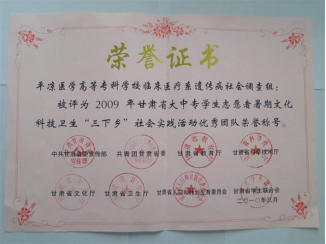 荣誉证书
平凉医学高等专科学校临床医疗系遗传病社会调查组：
被评为 2009 年甘肃省大中专学生志愿者暑期文化
科技卫生“三下乡”社会实践活动优秀团队荣誉称号。
中共甘肃省委宣传部 共青团甘肃省委 甘肃省教育厅 甘肃省科学技术厅
甘肃省文化厅 甘肃省卫生厅 甘肃省人口 委员会 甘肃省学生联合会
二〇一〇年三月